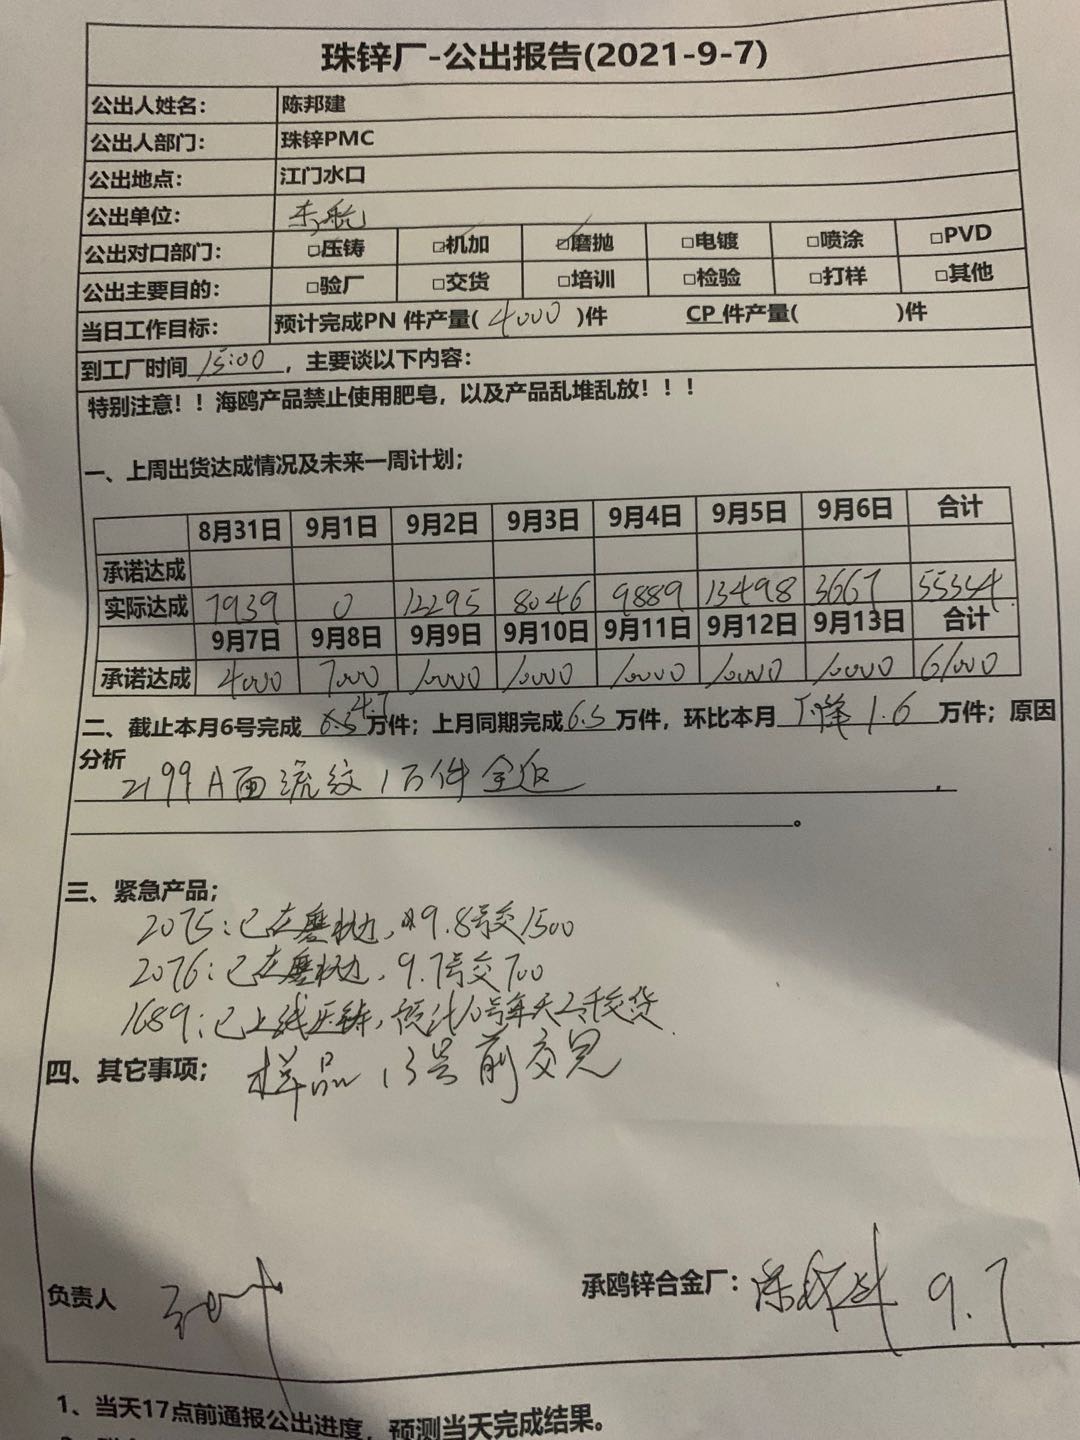 珠锌厂-公出报告(2021-9-7)
公出人姓名： 陈邦建
公出人部门： 珠锌PMC
公出地点： 江门水口
公出单位： 杰航
公出对口部门： □压铸 ☑机加 ☑磨抛 □电镀 □喷涂 □PVD
公出主要目的： □验厂 □交货 □培训 □检验 □打样 □其他
当日工作目标： 预计完成PN 件产量( 4000 )件 CP 件产量( )件
到工厂时间 15:00 ，主要谈以下内容：
特别注意！！海鸥产品禁止使用肥皂，以及产品乱堆乱放！！！
一、上周出货达成情况及未来一周计划；
8月31日 9月1日 9月2日 9月3日 9月4日 9月5日 9月6日 合计
承诺达成
实际达成 7939 0 12295 8046 9889 13498 3667 55334
9月7日 9月8日 9月9日 9月10日 9月11日 9月12日 9月13日 合计
承诺达成 4000 7000 10000 10000 10000 10000 10000 61000
二、截止本月6号完成 4.7 万件；上月同期完成 6.5 万件，环比本月 下降1.6 万件；原因
分析 2199A面流纹1万件全返
。
三、紧急产品；
2075：已在磨抛边，9.8号交1500
2076：已在磨抛边，9.7号交700
1689：已上线压铸，预计10号每天2千交货
四、其它事项； 样品13号前交完
负责人
承鸥锌合金厂： 陈邦建 9.7
1、当天17点前通报公出进度，预测当天完成结果。